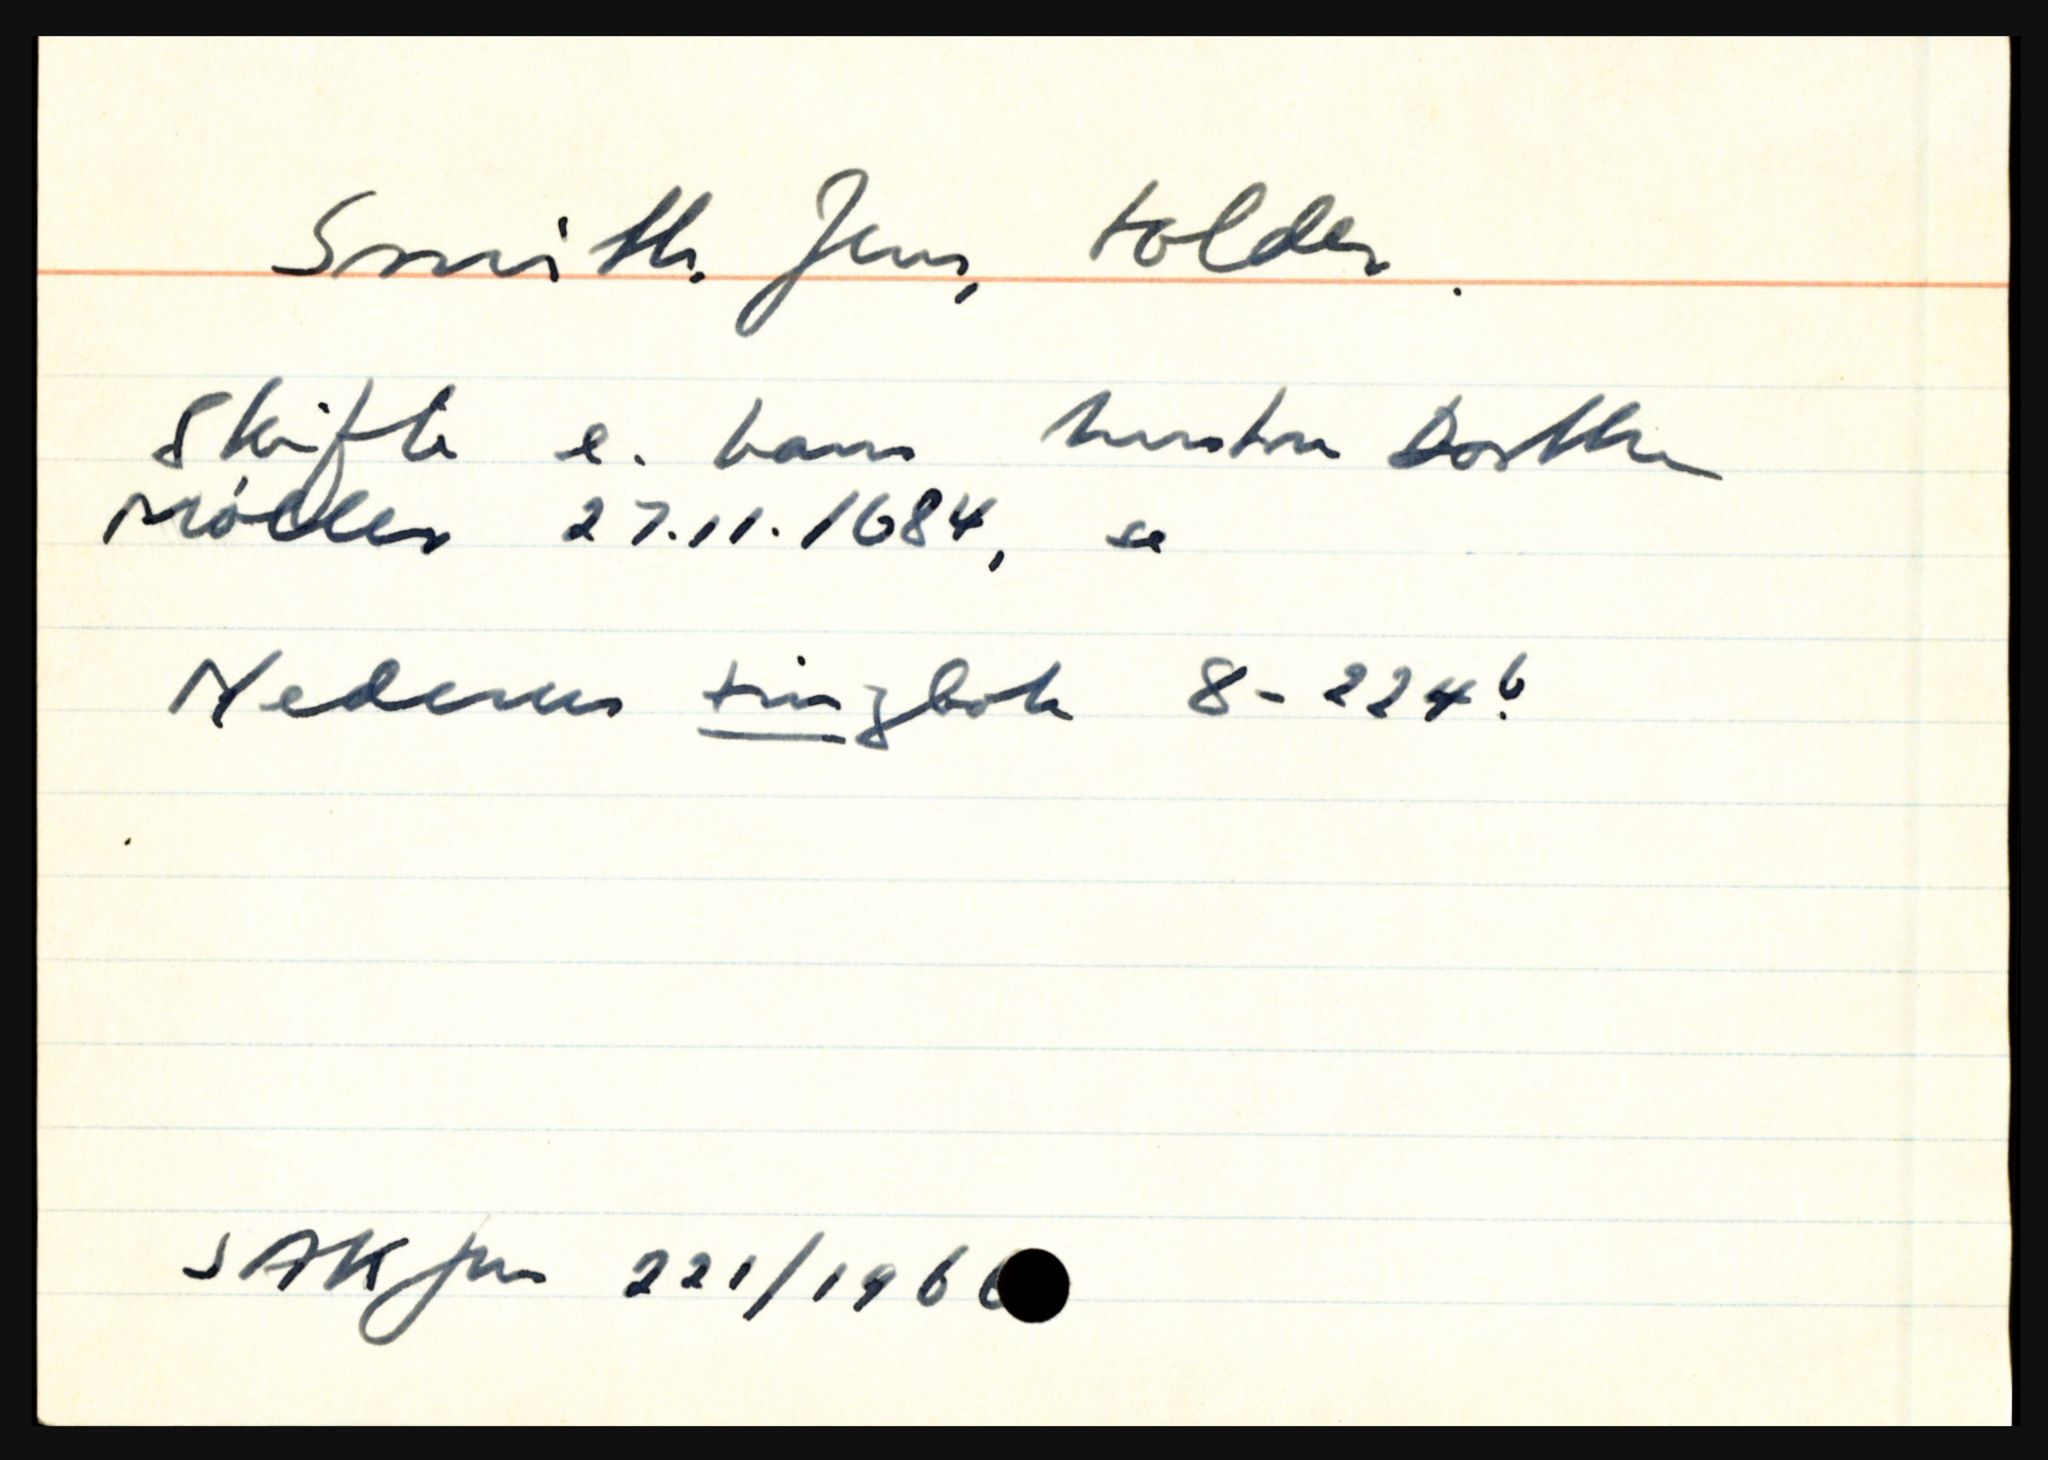 Smith Jens, tolder.
Skifte e. hans hustru Dorthe
Møller 27.11.1684, se
Nedenes tingbok 8-224b.
SAK jnr 221/1966